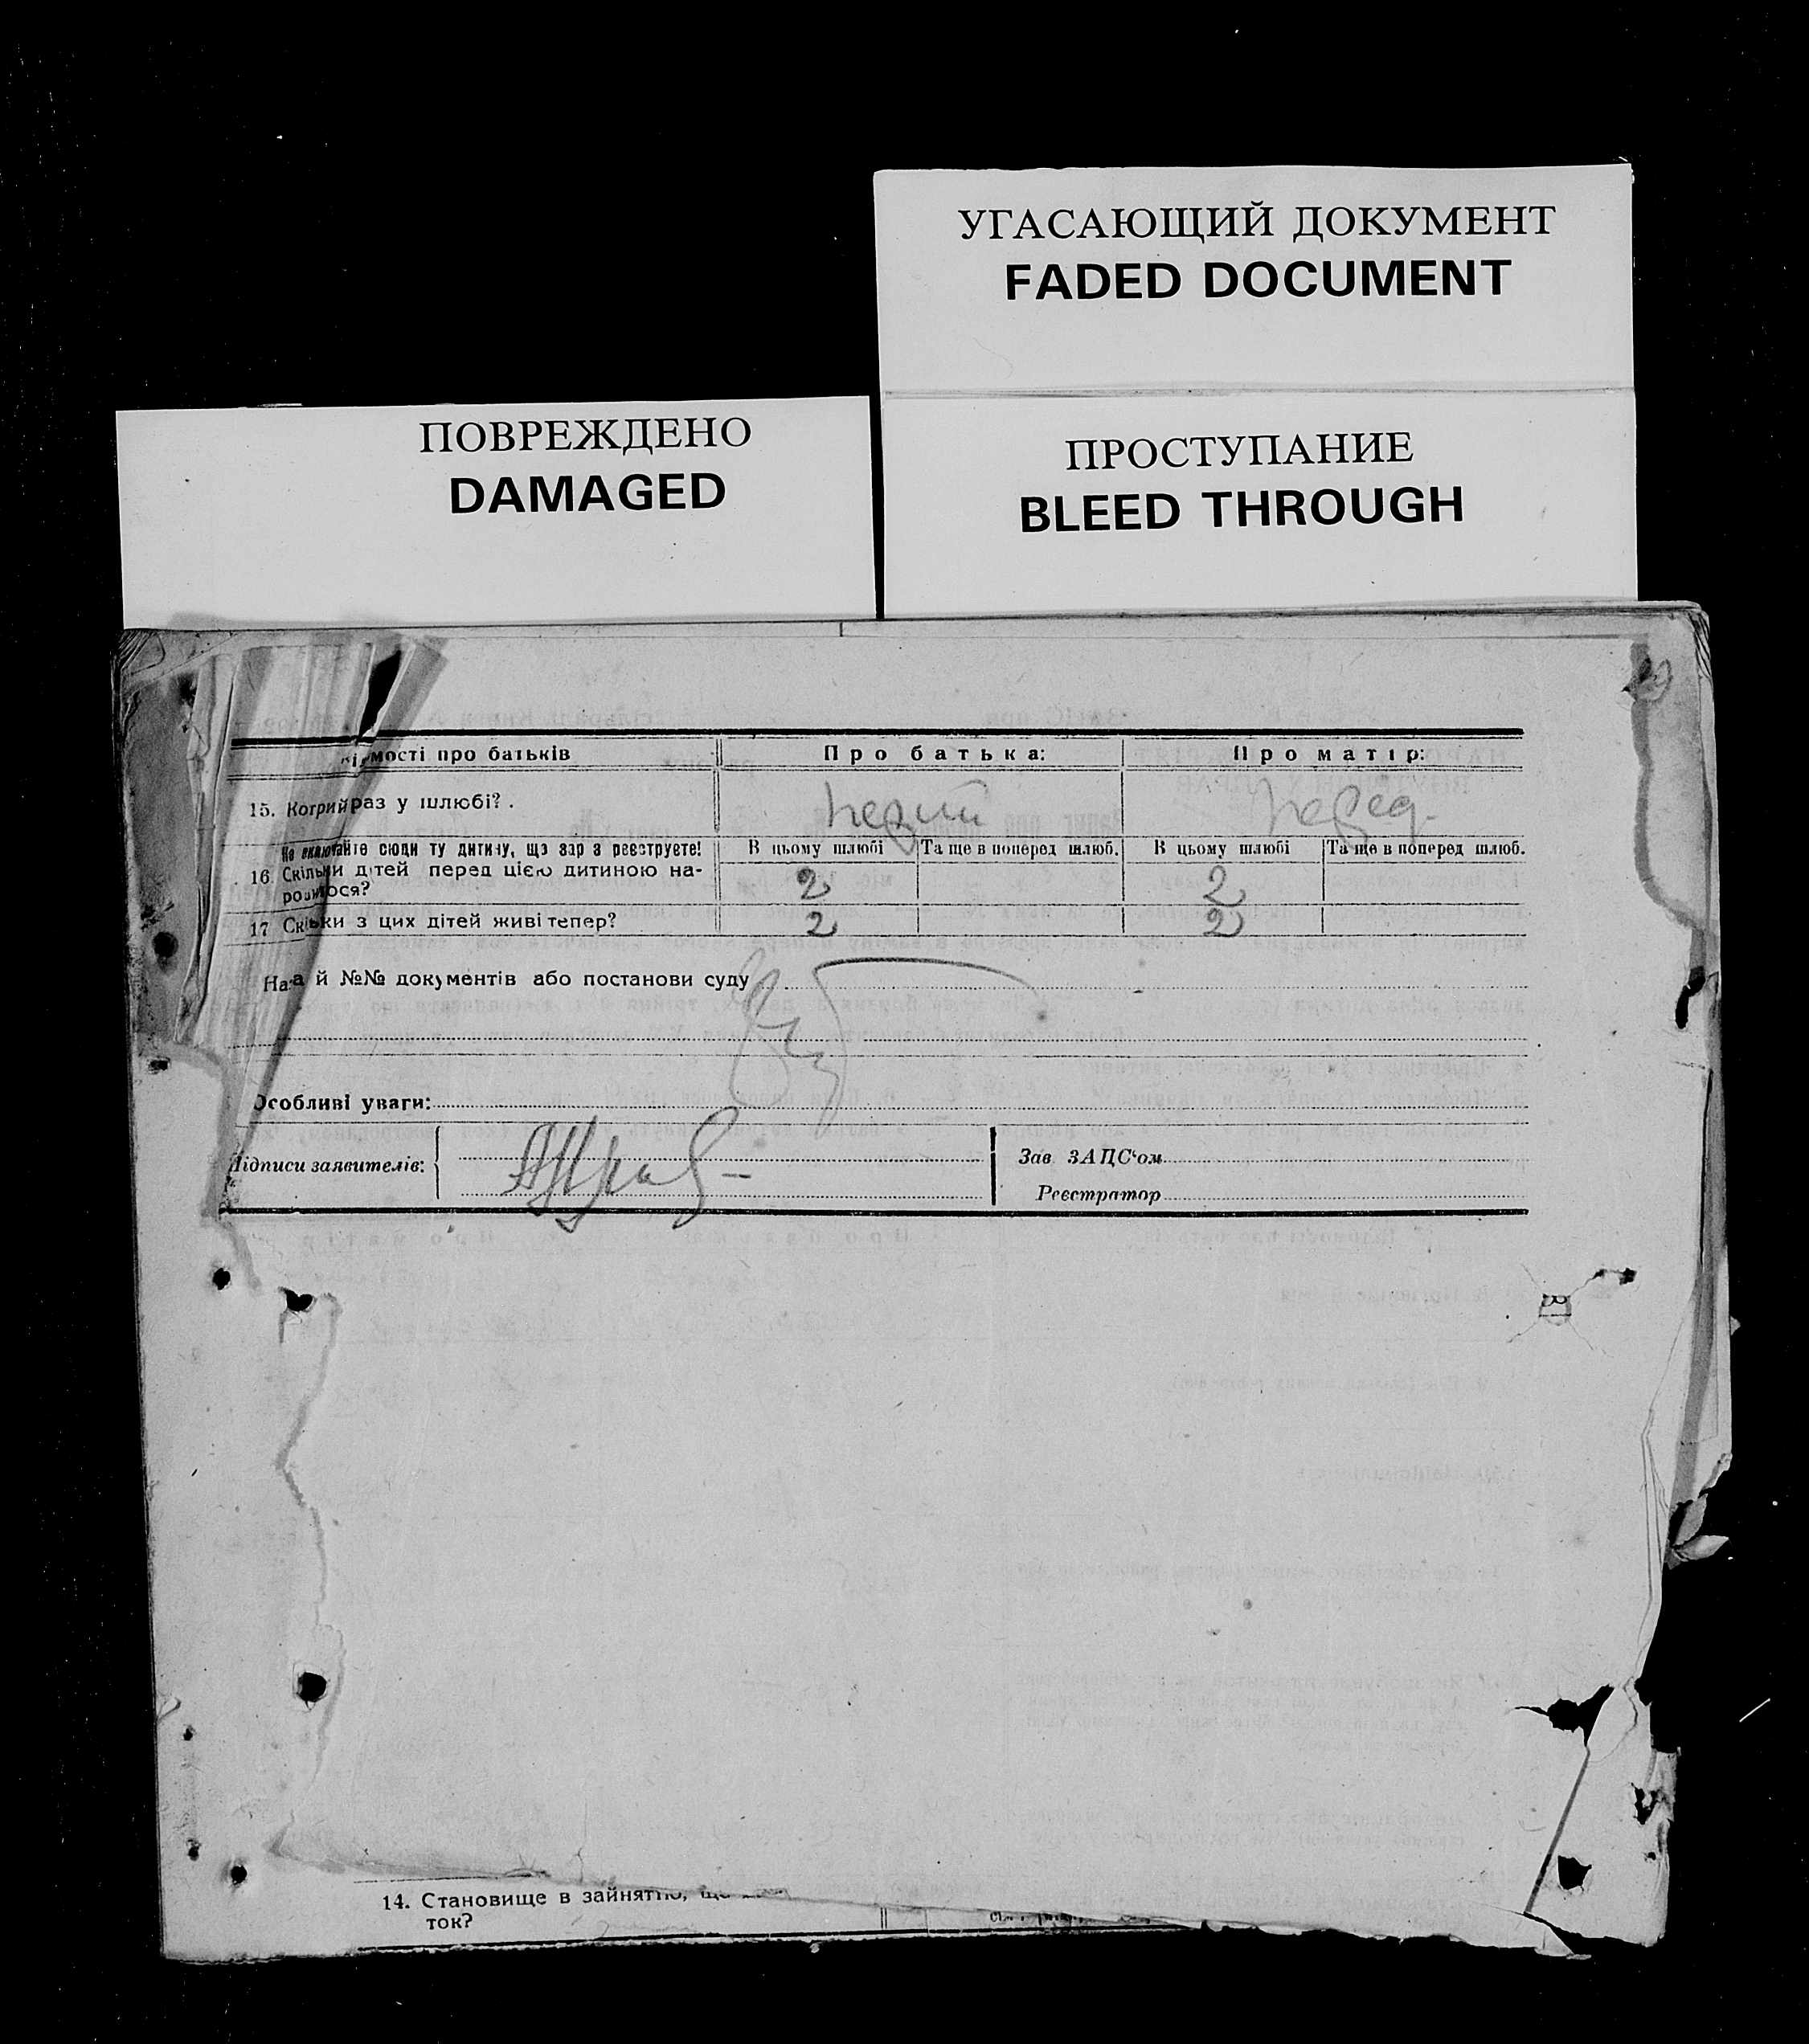 УГАСАЮЩИЙ ДОКУМЕНТ
FADED DOCUMENT
ПОВРЕЖДЕНО
DAMAGED
ПРОСТУПАНИЕ
BLEED THROUGH
29
мості про батьків
Про батька:
Про матір:
15. Котрий раз у шлюбі?
перший
Не включайте сюди ту дитину, що зараз реєструєте!
В цьому шлюбі
Та ще в поперед шлюб.
В цьому шлюбі
Та ще в поперед шлюб.
16 Скільки дітей перед цією дитиною на-
родилося?
2
2
17 Скільки з цих дітей живі тепер?
2
2
й №№ документів або постанови суду
Особливі уваги:
Підписи заявителів:
Зав ЗАЦС'ом
Реєстратор
14. Становище в зайнятю,
ток?